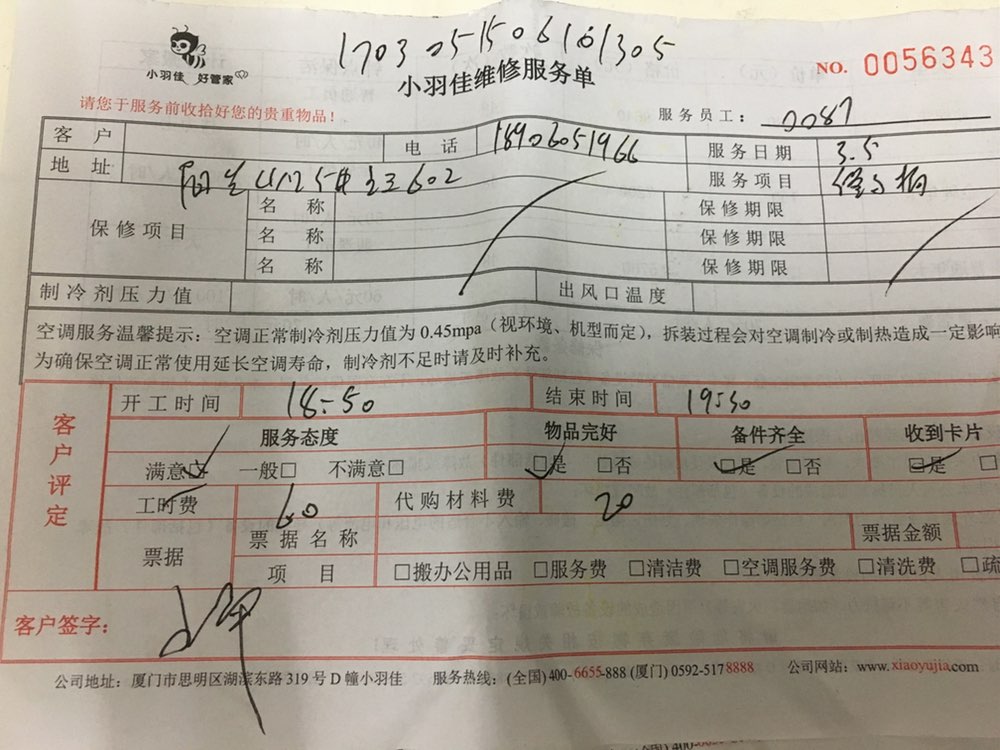 小羽佳 好管家
小羽佳维修服务单
NO. 0056343
请您于服务前收拾好您的贵重物品!
服务员工: 0087
客户 电话 18906051966 服务日期 3.5
地址 602 服务项目
保修项目 名称 保修期限
名称 保修期限
名称 保修期限
制冷剂压力值 出风口温度
空调服务温馨提示: 空调正常制冷剂压力值为 0.45mpa (视环境、机型而定), 拆装过程会对空调制冷或制热造成一定影响
为确保空调正常使用延长空调寿命, 制冷剂不足时请及时补充。
客户评定
开工时间 18:50 结束时间 19:30
服务态度 物品完好 备件齐全 收到卡片
满意☑ 一般□ 不满意□ ☑是 □否 ☑是 □否 ☑是 □
工时费 60 代购材料费 20
票据 票据名称 票据金额
项目 □搬办公用品 □服务费 □清洁费 □空调服务费 □清洗费 □疏
客户签字:
公司地址: 厦门市思明区湖滨东路 319 号 D 幢小羽佳 服务热线: (全国) 400-6655-888 (厦门) 0592-5178888 公司网站: www.xiaoyujia.com